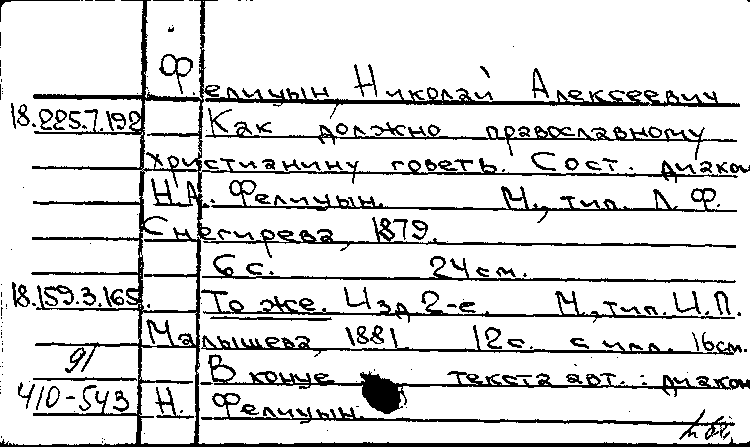 Фелицын, Николай Алексеевич
18.225.7.192 Как должно православному
христианину говеть. Сост.: диакон
Н.А. Фелицын. М., тип. Л.Ф.
Снегирева, 1879.
6 с. 24 см.
18.159.3.165. То же. Изд. 2-е. М., тип. И.П.
Малышева, 1881. 12 с. с илл. 16 см.
91 В конце текста авт.: диакон
410-543 Н. Фелицын.